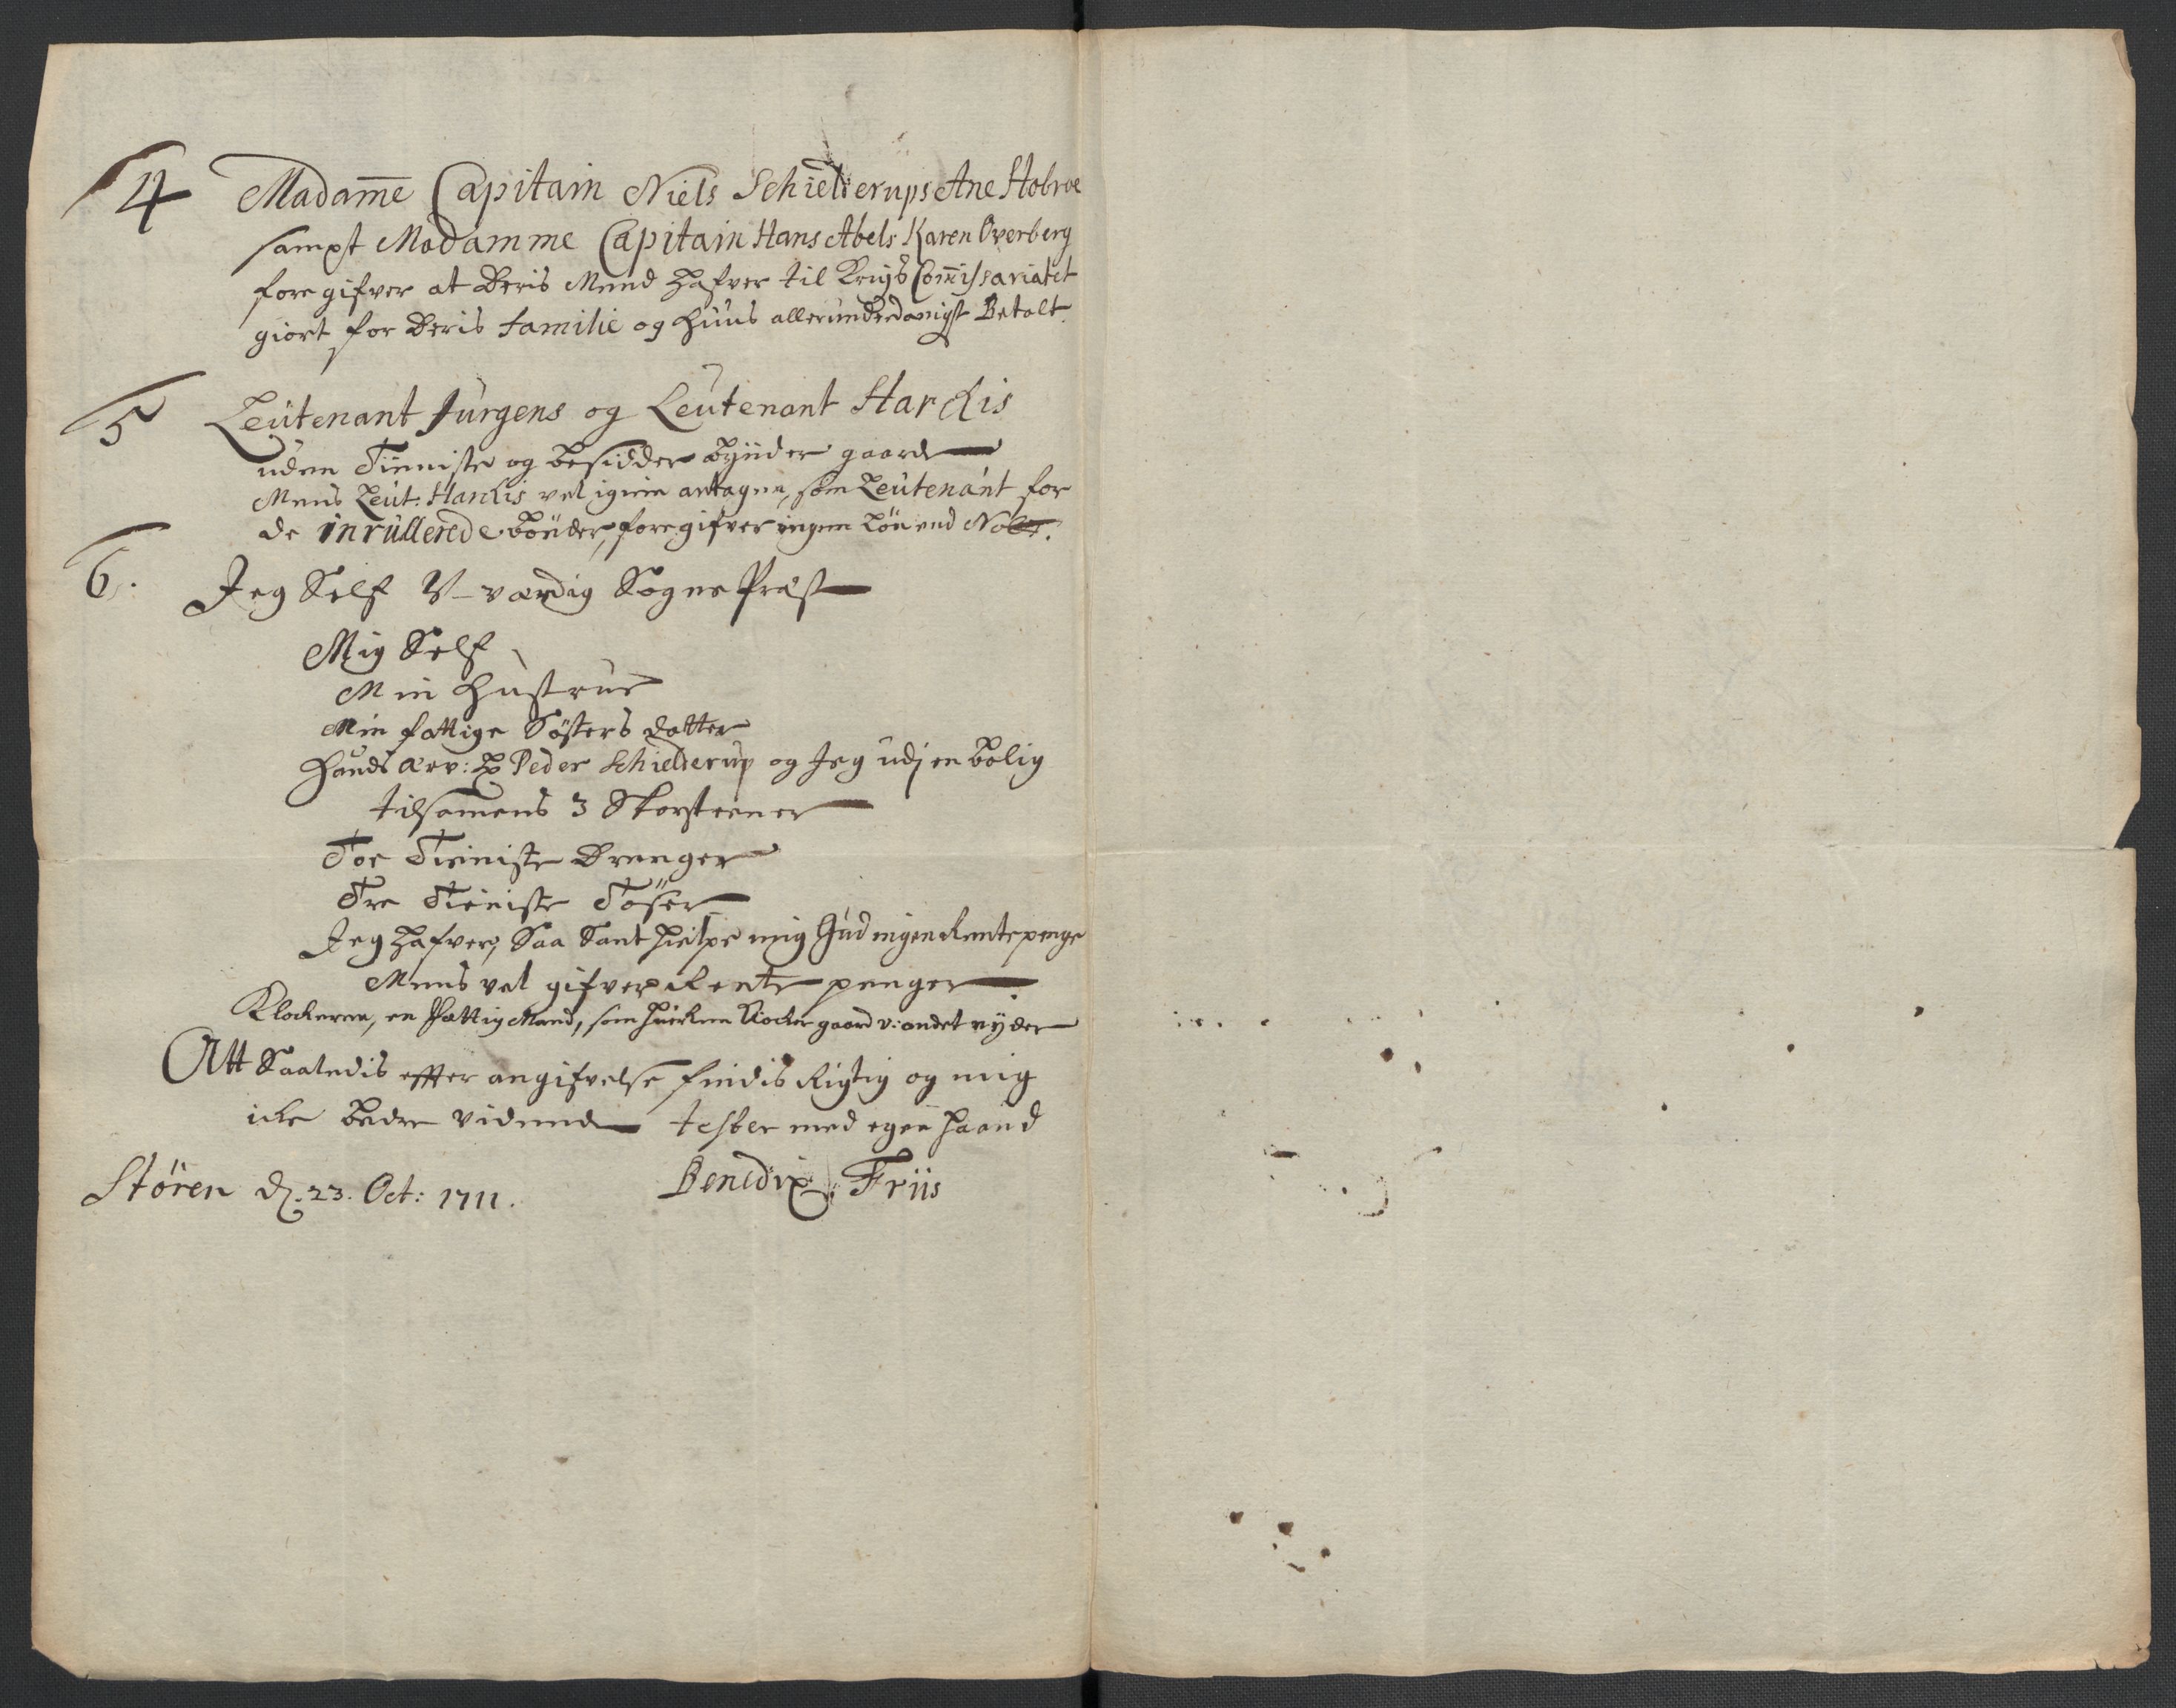 4 Madam̄e Capitain Niels Schielderups Ane Hobroe
sampt Madamme Capitain Hans Abels Karen Overberg
foregifver at Deris Mend hafver til Krigs Com̄issariatet
giort for Deris Familie og Huus allerunderdanigst Betalt
5 Leutenant Jurgens og Leutenant Harckis
uden Tienniste og besidder bynder gaarde
Mens Leut: Harckis vel igien antagen, som Leutenant for
de inrullerede bønder, foregifver ingen Løn end
6. Jeg Self U-værdig Sogne Præst
Mig Self
Min Hustrue
Min fattige Søsters Datter
Hands ærv: H Peder Schielderup og Jeg udj en bolig
tilsamens 3 Skorsteener
Toe Tienniste Drenger
Tre Tieniste Tøser
Jeg hafver, Saa Sant hielpe mig Gud ingen Rentepenge
Mens vel gifver Rente penger
Klockeren, en fattig Mand, som huerken Klocker gaard v: andet nyder
Att Saaledis effter angifvelse findis Rigtig og mig
icke bedre vidende tester med egen haand
Støren d. 23. Oct: 1711. Benedix Friis